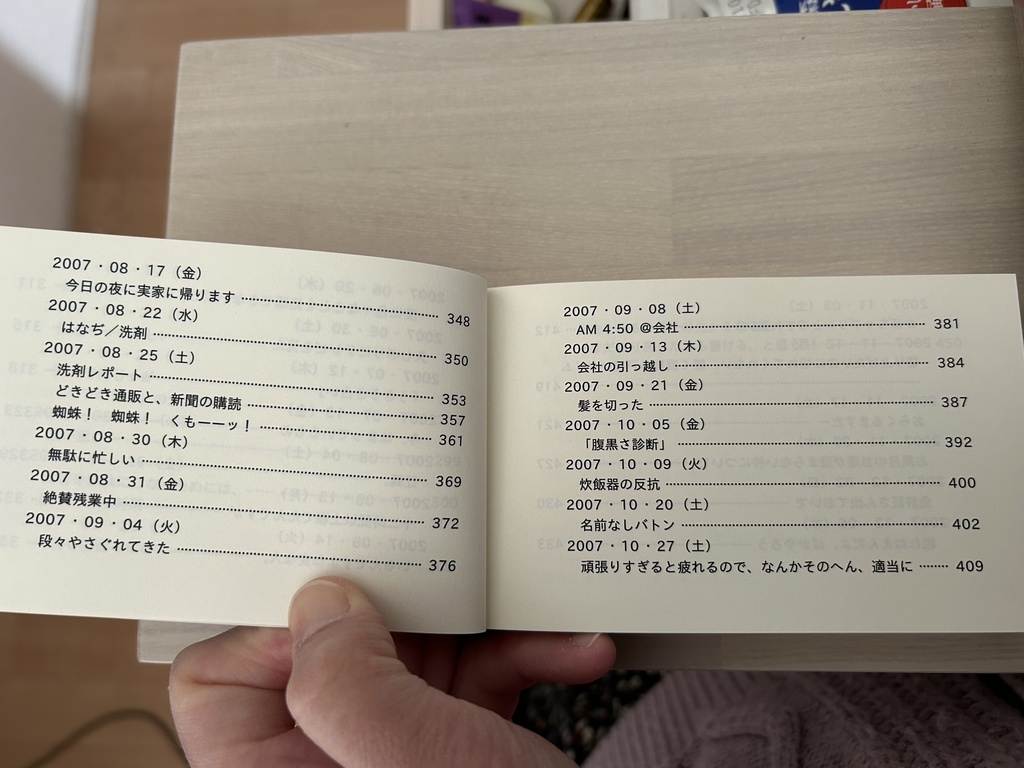 2007・08・17（金）
今日の夜に実家に帰ります 348
2007・08・22（水）
はなぢ／洗剤 350
2007・08・25（土）
洗剤レポート 353
どきどき通販と、新聞の購読 357
蜘蛛！　蜘蛛！　くもーーッ！ 361
2007・08・30（木）
無駄に忙しい 369
2007・08・31（金）
絶賛残業中 372
2007・09・04（火）
段々やさぐれてきた 376
2007・09・08（土）
AM 4:50 @会社 381
2007・09・13（木）
会社の引っ越し 384
2007・09・21（金）
髪を切った 387
2007・10・05（金）
「腹黒さ診断」 392
2007・10・09（火）
炊飯器の反抗 400
2007・10・20（土）
名前なしバトン 402
2007・10・27（土）
頑張りすぎると疲れるので、なんかそのへん、適当に 409